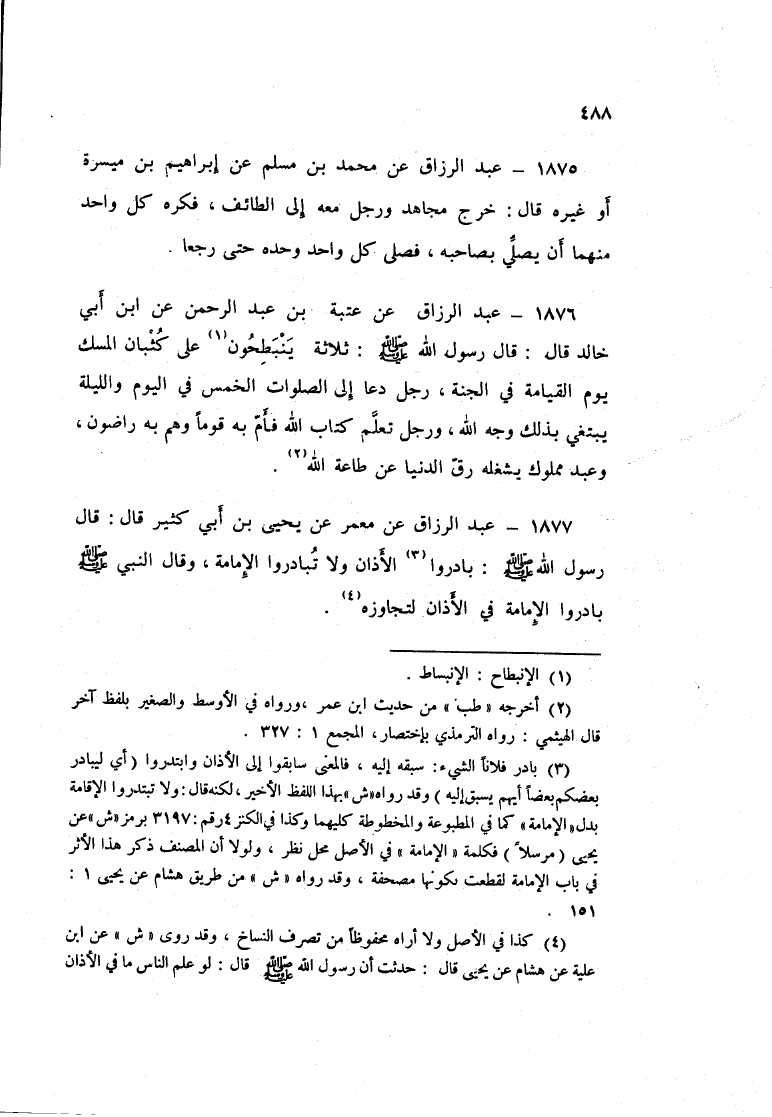 ٤٨٨
١٨٧٥ – عبد الرزاق عن محمد بن مسلم عن إبراهيم بن ميسرة
أو غيره قال : خرج مجاهد ورجل معه إلى الطائف ، فكره كل واحد
منهما أن يصلِّي بصاحبه ، فصلى كل واحد وحده حتى رجعا .
١٨٧٦ – عبد الرزاق عن عتبة بن عبد الرحمن عن ابن أبي
خالد قال : قال رسول الله ﷺ : ثلاثة يَنْبَطِحُون(١) على كُثْبان المسك
يوم القيامة في الجنة ، رجل دعا إلى الصلوات الخمس في اليوم والليلة
يبتغي بذلك وجه الله ، ورجل تعلَّم كتاب الله فأمّ به قوماً وهم به راضون ،
وعبد مملوك يشغله رقّ الدنيا عن طاعة الله(٢) .
١٨٧٧ – عبد الرزاق عن معمر عن يحيى بن أبي كثير قال : قال
رسول الله ﷺ : بادروا(٣) الأذان ولا تُبادروا الإمامة ، وقال النبي ﷺ
بادروا الإمامة في الأذان لتجاوزه(٤) .
(١) الإنبطاح : الإنبساط .
(٢) أخرجه « طب » من حديث ابن عمر ،ورواه في الأوسط والصغير بلفظ آخر
قال الهيثمي : رواه الترمذي بإختصار، المجمع ١ : ٣٢٧ .
(٣) بادر فلاناً الشيء: سبقه إليه ، فالمعنى سابقوا إلى الأذان وابتدروا ( أي ليبادر
بعضكم بعضاً أيهم يسبق إليه ) وقد رواه«ش»بهذا اللفظ الأخير ،لكنه قال :ولا تبتدروا الإقامة
بدل«الإمامة» كما في المطبوعة والمخطوطة كليهما وكذا في الكنز ٤رقم: ٣١٩٧ برمز«ش»عن
يحيى ( مرسلاً ) فكلمة « الإمامة » في الأصل محل نظر ، ولولا أن المصنف ذكر هذا الأثر
في باب الإمامة لقطعت بكونها مصحفة ، وقد رواه « ش » من طريق هشام عن يحيى ١ :
١٥١ .
(٤) كذا في الأصل ولا أراه محفوظاً من تصرف النساخ ، وقد روى « ش » عن ابن
علية عن هشام عن يحيى قال : حدثت أن رسول الله ﷺ قال : لو علم الناس ما في الأذان